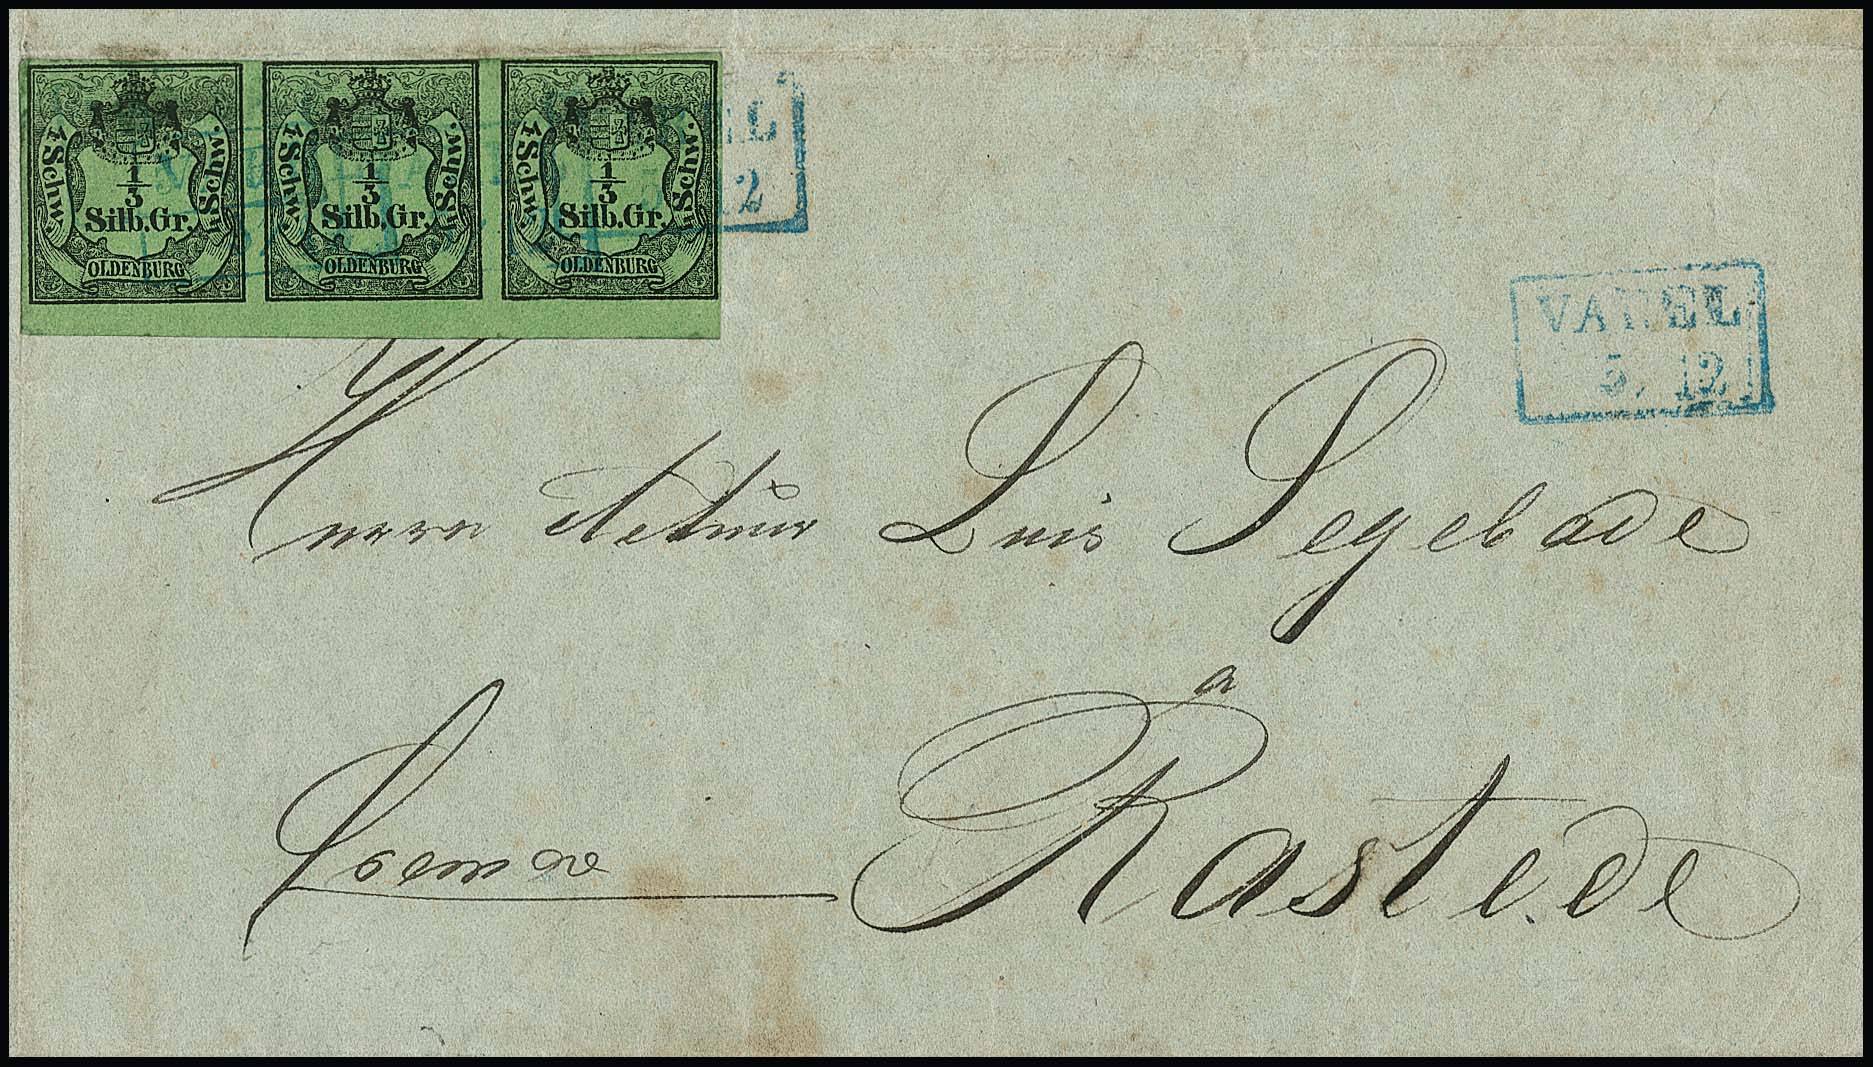 1 Schw. 1/3 Silb.Gr. 1 Schw. OLDENBURG
1 Schw. 1/3 Silb.Gr. 1 Schw. OLDENBURG
1 Schw. 1/3 Silb.Gr. 1 Schw. OLDENBURG
EL
12
VAREL
5/12
Herrn Luis Segebade
a
Rastede